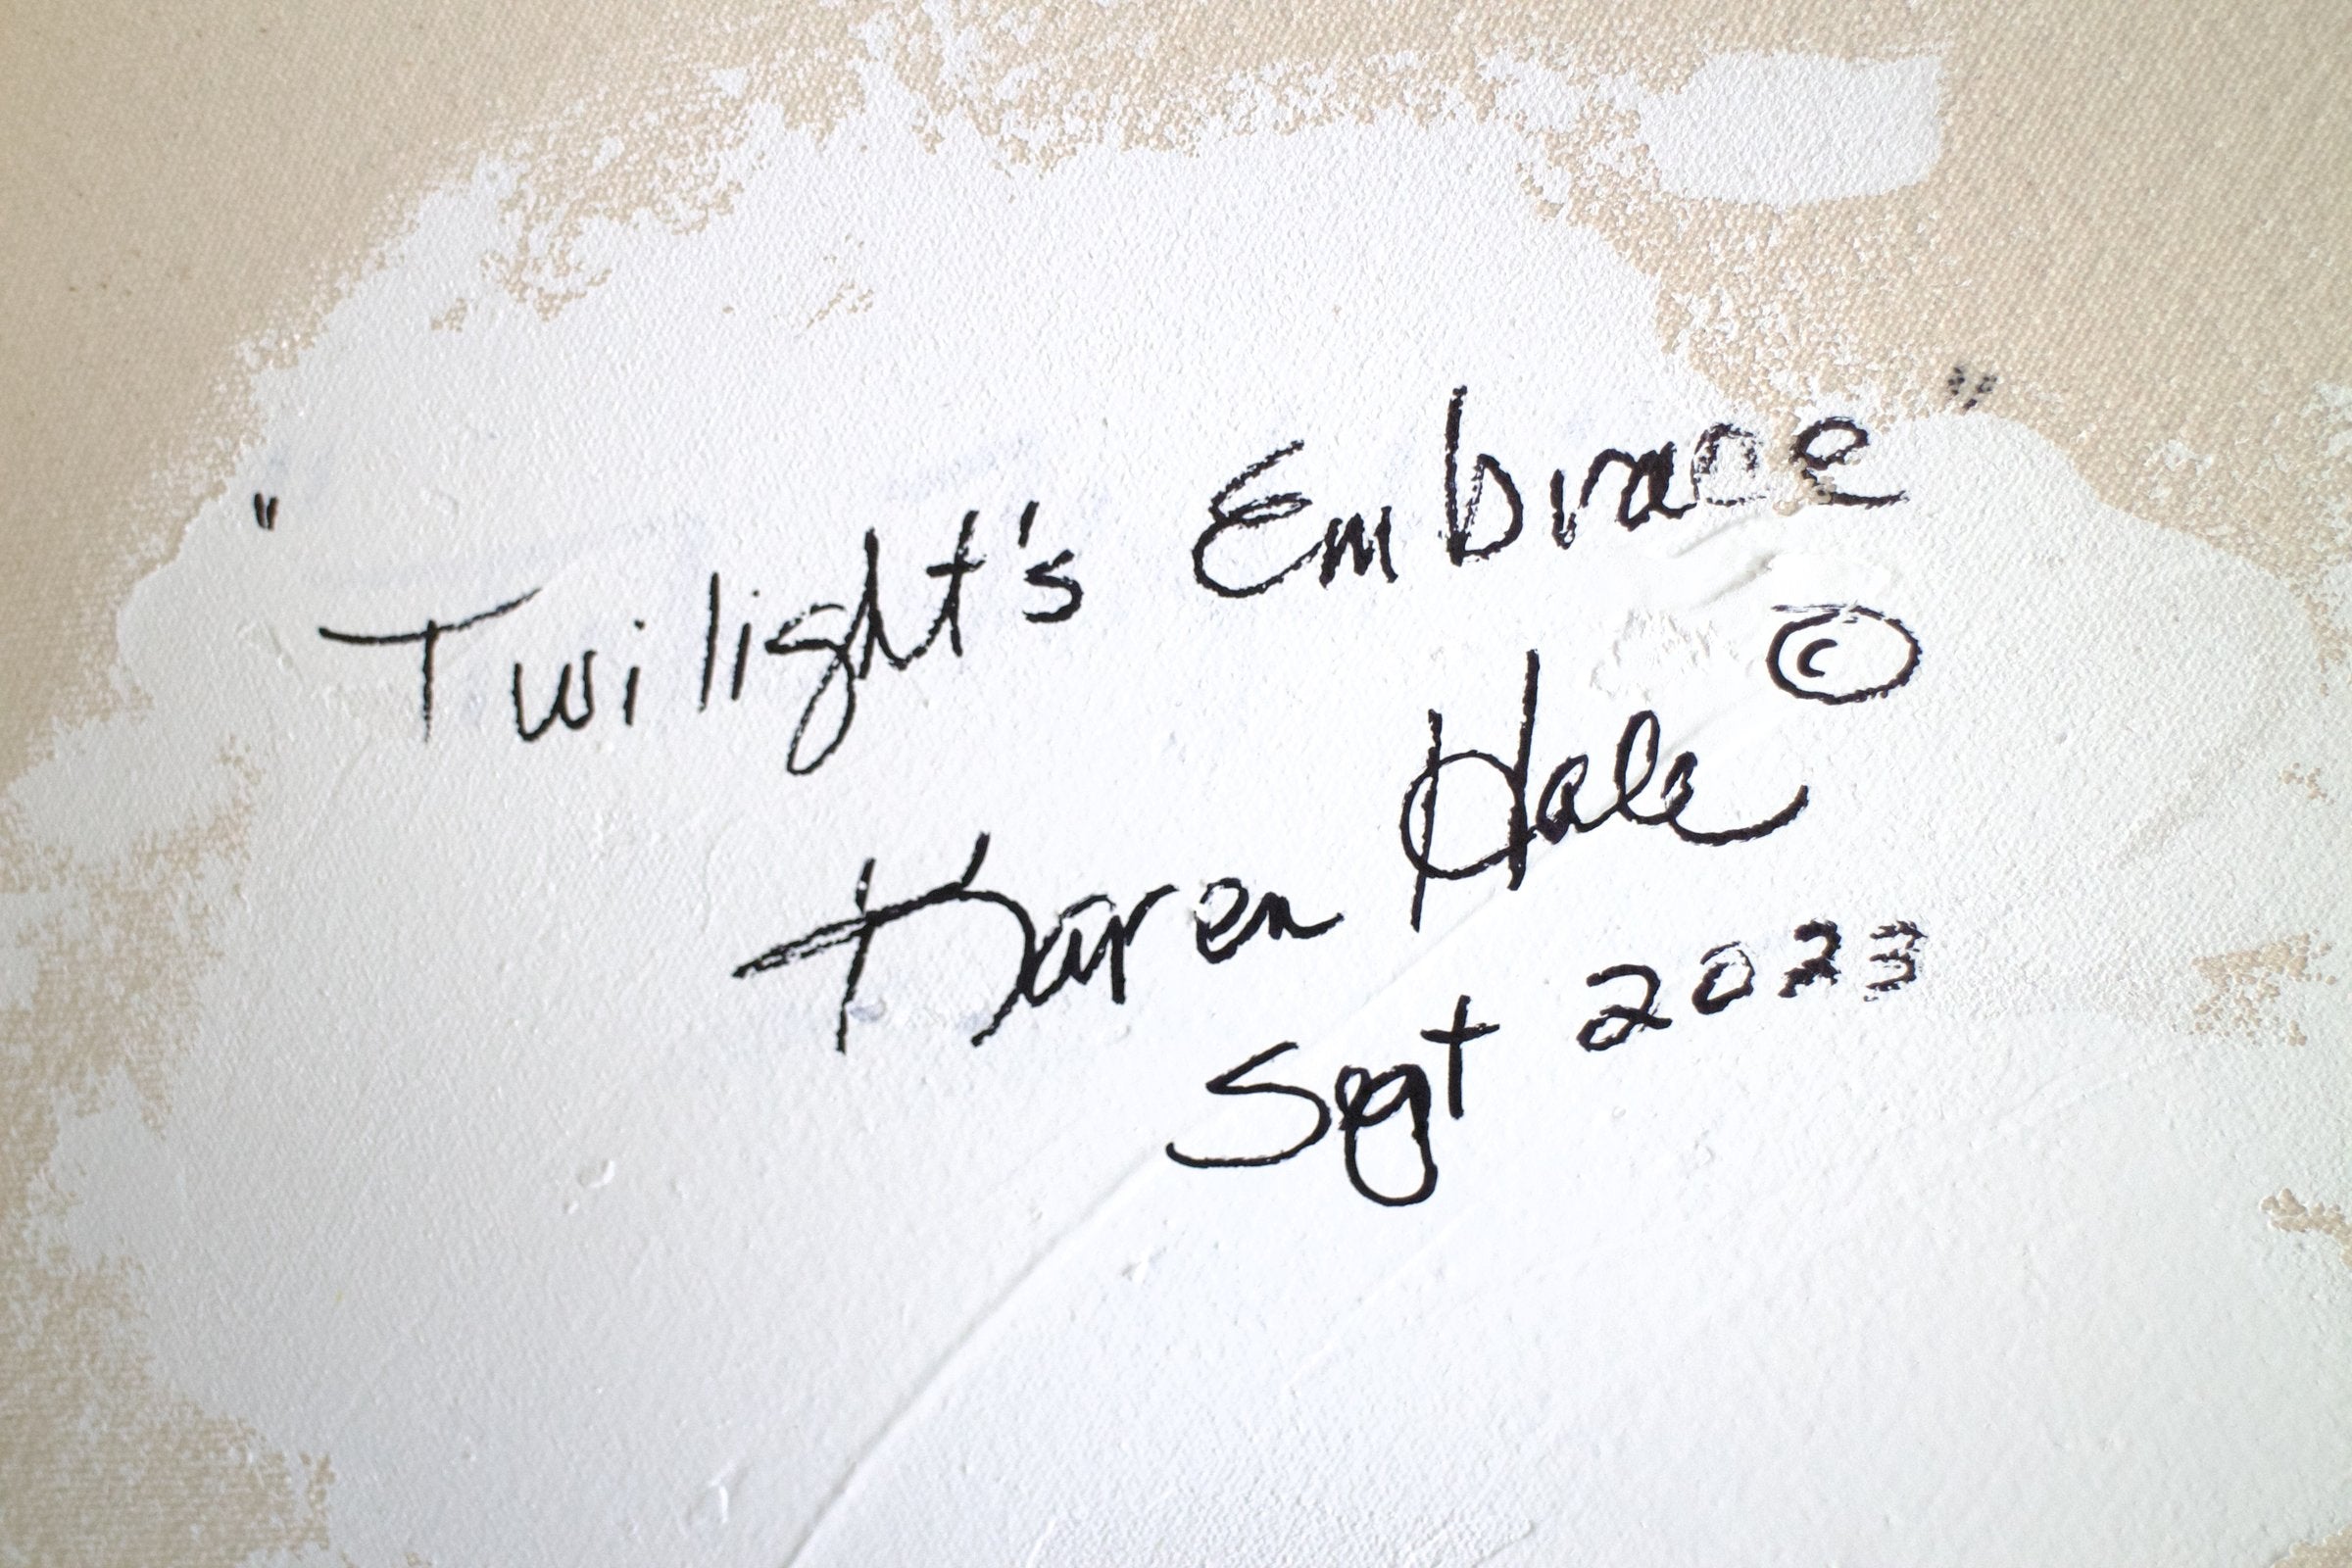 "Twilight's Embrace"
Karen Hale ©
Sept 2023